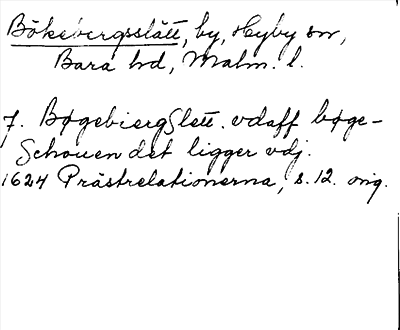 Bökebergsslätt, by, Hyby sn,
Bara hd, Malm. l.
7. BøgebiergSlett. vdaff bøge-
Schouen det ligger vdj.
1624 Prästrelationerna, s. 12. orig.